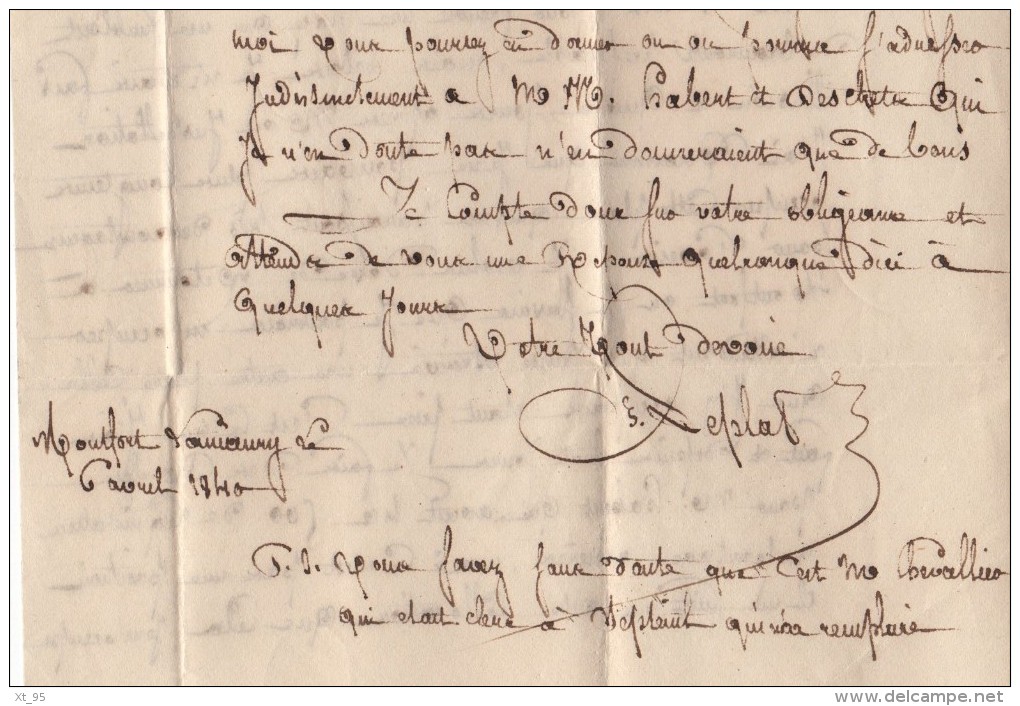 moi vous pourrez en donner ou on pourra s'adresser
Indistinctement a M M. habert et Deschetre Qui
Je n'en doute pas n'en donneraient que de bons
Je Compte donc sur votre obligeance et
attends de vous une Reponse quelconque d'ici à
quelques Jours
Votre tout devoué
Leplat
Montfort l'amaury le
6 avril 1840
P. S. Vous savez sans doute que C'est M Chevallier
qui etait clerc à qui m'a remplacé
Xt_95
www.delcampe.net